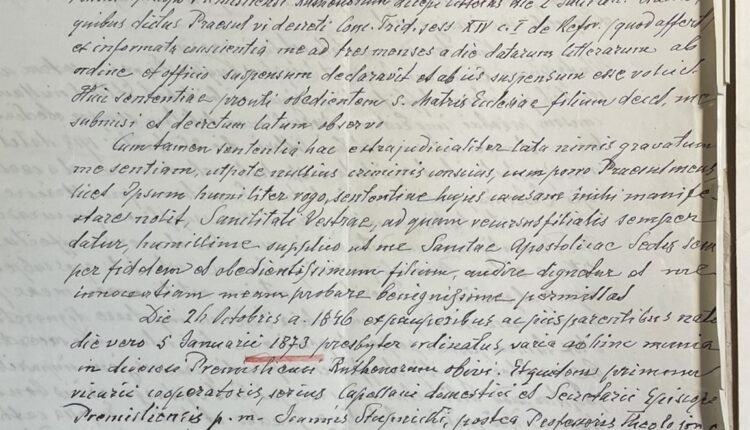 quibus dictus Praesul vi decreti Conc. Trid. sess XIV c. I de Refor, quod affert
et informata conscientia me ad tres menses a die datarum litterarum ab
ordine et officio suspensum declaravit et ab iis suspensum esse voluit.
Huic sententiae pronti obedientem S. Matris Ecclesiae filium decet, me
submisi et decretum latum observo
Cum tamen sententia hac extrajudicialiter lata nimis gravatum
me sentiam, utpote nullius criminis conscius, cum porro Praesul meus
licet Ipsum humiliter rogo, sententiae hujus causam mihi manife-
stare nolit, Sanctitati Vestrae, ad quam recursus filialis semper
datur, humillime supplico ut me Sanctae Apostolicae Sedis sem
per fidelem et obedientissimum filium, audire dignetur et me
innocentiam meam probare benignissime permittat
Die 24 Octobris a. 1846 ex pauperibus ac piis parentibus natu
die vero 5 Januarii 1873 presbyter ordinatus, varia ad hinc munia
in dioecesi Premisliensi Ruthenorum obivi. Et quidem primum
vicarii cooperatoris, serius Capellani domestici et Secretarii Episcop
Premisliensis p. m. Joannis Stupnicki, postea Professoris Theolo